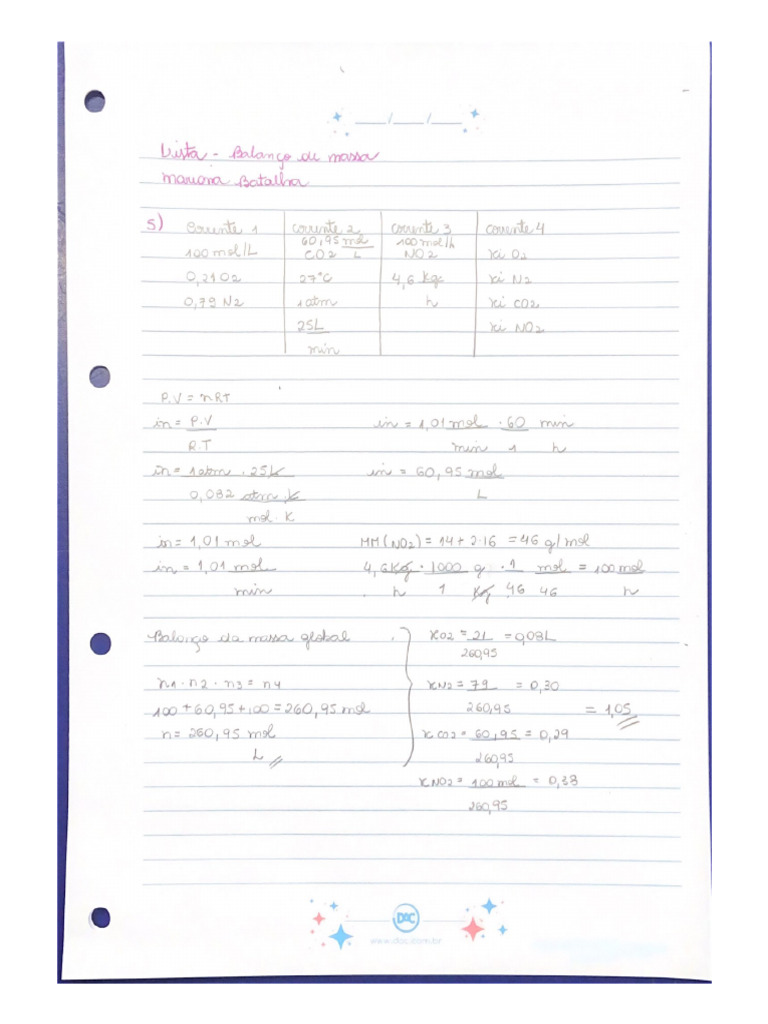 __/__/__
Lista - Balanço de massa
Mariana Batalha
5) Corrente 1 corrente 2 corrente 3 corrente 4
60,95 mol/L 100 mol/h
100 mol/L CO2 NO2 xi O2
0,21 O2 27°C 4,6 Kg xi N2
0,79 N2 1 atm h xi CO2
25L xi NO2
min
P.V = nRT
ṅ = P.V ṅ = 1,01 mol . 60 min
R.T min 1 h
ṅ = 1 atm . 25L ṅ = 60,95 mol
0,082 atm . L L
mol . K
ṅ = 1,01 mol MM(NO2) = 14 + 2.16 = 46 g/mol
ṅ = 1,01 mol 4,6 Kg . 1000 g . 1 mol = 100 mol
min h 1 Kg 46 46 h
Balanço da massa global xO2 = 21 = 0,08L
260,95
n1 . n2 . n3 = n4 xN2 = 79 = 0,30
100 + 60,95 + 100 = 260,95 mol 260,95 = 1,05
n = 260,95 mol xCO2 = 60,95 = 0,29
L 260,95
xNO2 = 100 mol = 0,38
260,95
DAC
www.dac.com.br